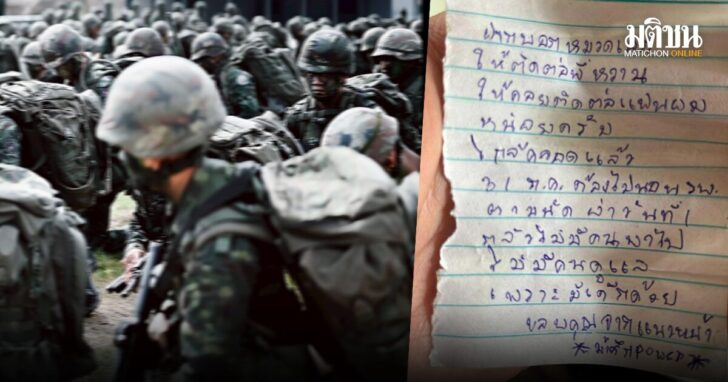 มติชน
MATICHON ONLINE
ฝากบอกหมวด
ให้ติดต่อพี่หวาน
ให้คอยติดต่อแฟนผม
หน่อยครับ
ใกล้คลอดแล้ว
31 ก.ค. ต้องไปนอน รพ.
ตามนัด ผ่าวันที่ 1
กลัวไม่มีคนพาไป
ไม่มีคนดูแล
เพราะมีเด็กด้วย
ขอบคุณจากแนวหน้า
POWER